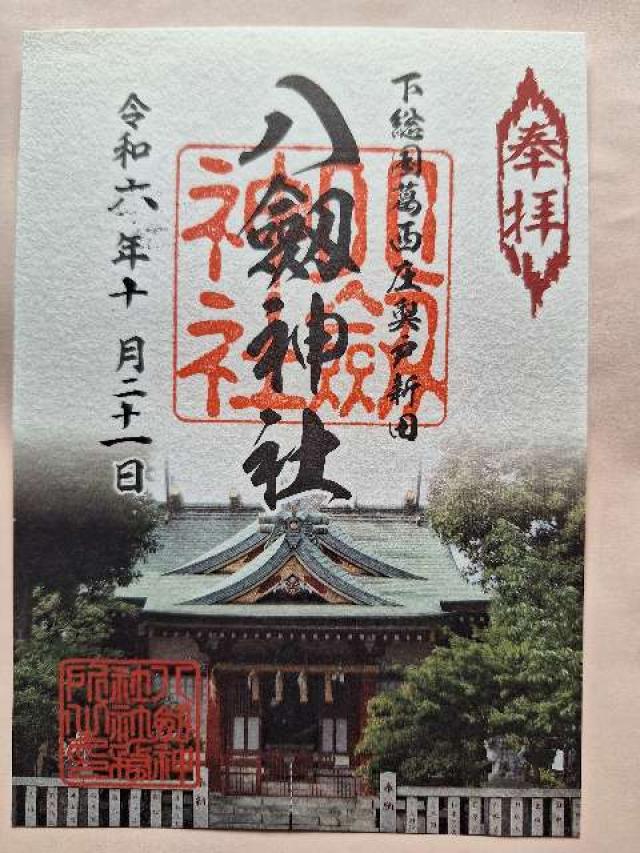 奉拝
下総国葛西庄奥戸新田
八劔神社
令和六年十月二十一日
奉納